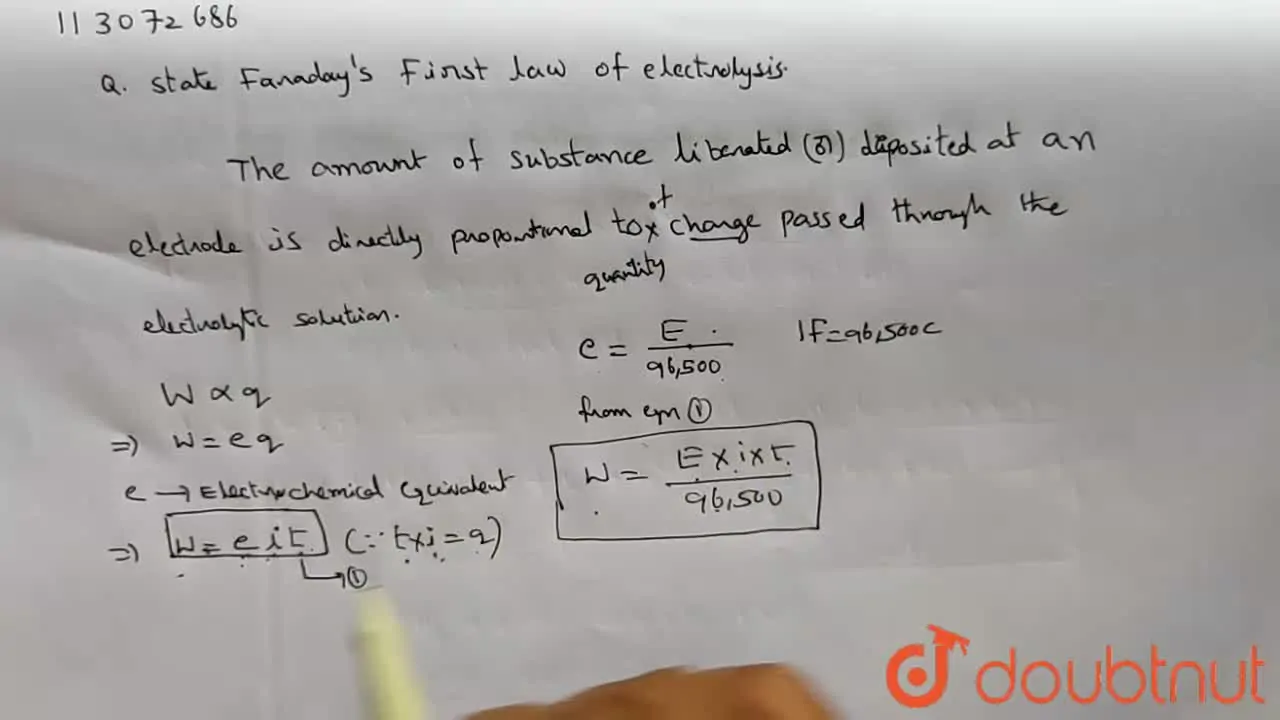 11 3072686
Q. State Faraday's First law of electrolysis.
The amount of substance liberated (or) deposited at an
electrode is directly proportional to x of charge passed through the
quantity
electrolytic solution.
W ∝ q
⇒ W = e q
e → Electrochemical equivalent
⇒ W = e i t (∵ t x i = q)
→ ①
e = E / 96,500 1F = 96,500 C
from eqn ①
W = E x i x t / 96,500
doubtnut